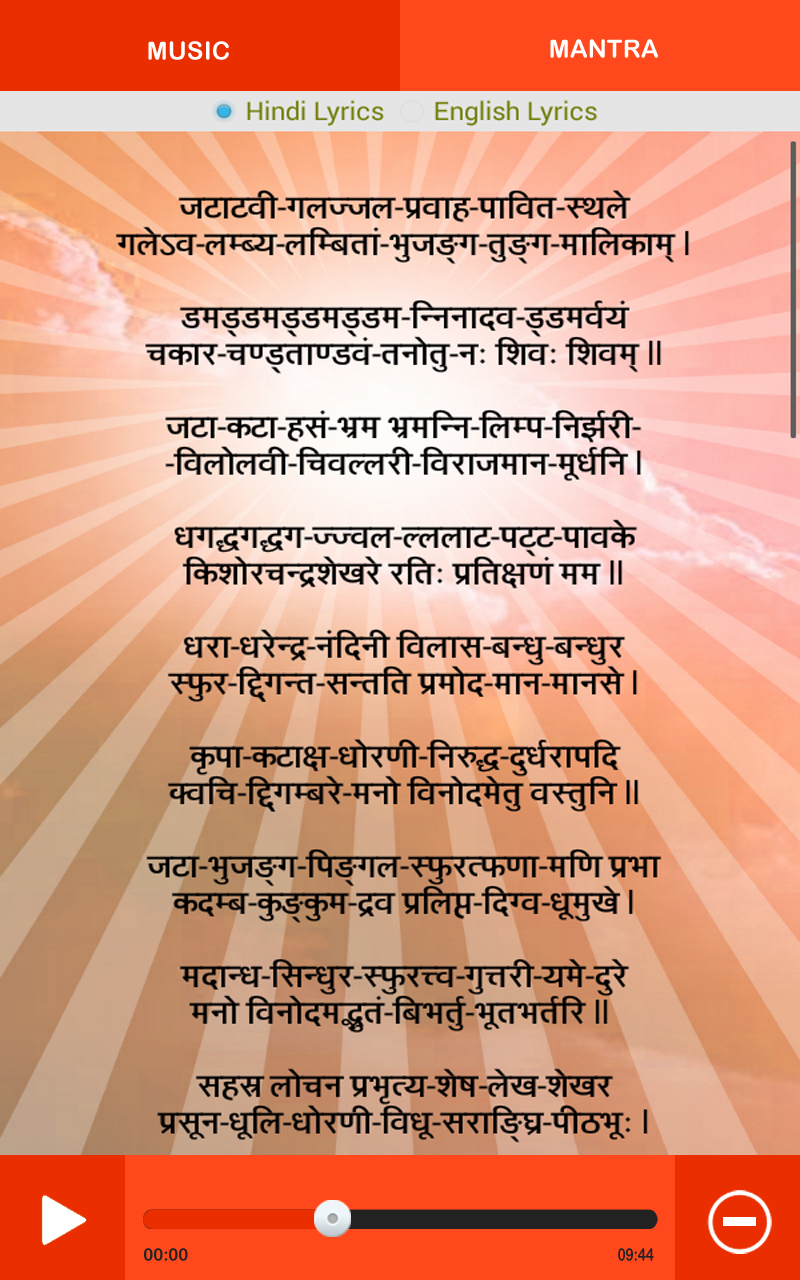 MUSIC
MANTRA
Hindi Lyrics
English Lyrics
जटाटवी-गलज्जल-प्रवाह-पावित-स्थले
गलेऽव-लम्ब्य-लम्बितां-भुजङ्ग-तुङ्ग-मालिकाम् ।
डमड्डमड्डमड्डम-न्निनादव-ड्डमर्वयं
चकार-चण्ड्ताण्डवं-तनोतु-नः शिवः शिवम् ॥
जटा-कटा-हसं-भ्रम भ्रमन्नि-लिम्प-निर्झरी-
-विलोलवी-चिवल्लरी-विराजमान-मूर्धनि ।
धगद्धगद्धग-ज्ज्वल-ल्ललाट-पट्ट-पावके
किशोरचन्द्रशेखरे रतिः प्रतिक्षणं मम ॥
धरा-धरेन्द्र-नंदिनी विलास-बन्धु-बन्धुर
स्फुर-द्दिगन्त-सन्तति प्रमोद-मान-मानसे ।
कृपा-कटाक्ष-धोरणी-निरुद्ध-दुर्धरापदि
क्वचि-द्दिगम्बरे-मनो विनोदमेतु वस्तुनि ॥
जटा-भुजङ्ग-पिङ्गल-स्फुरत्फणा-मणि प्रभा
कदम्ब-कुङ्कुम-द्रव प्रलिप्त-दिग्व-धूमुखे ।
मदान्ध-सिन्धुर-स्फुरत्त्व-गुत्तरी-यमे-दुरे
मनो विनोदमद्भुतं-बिभर्तु-भूतभर्तरि ॥
सहस्र लोचन प्रभृत्य-शेष-लेख-शेखर
प्रसून-धूलि-धोरणी-विधू-सराङ्घ्रि-पीठभूः ।
00:00
09:44